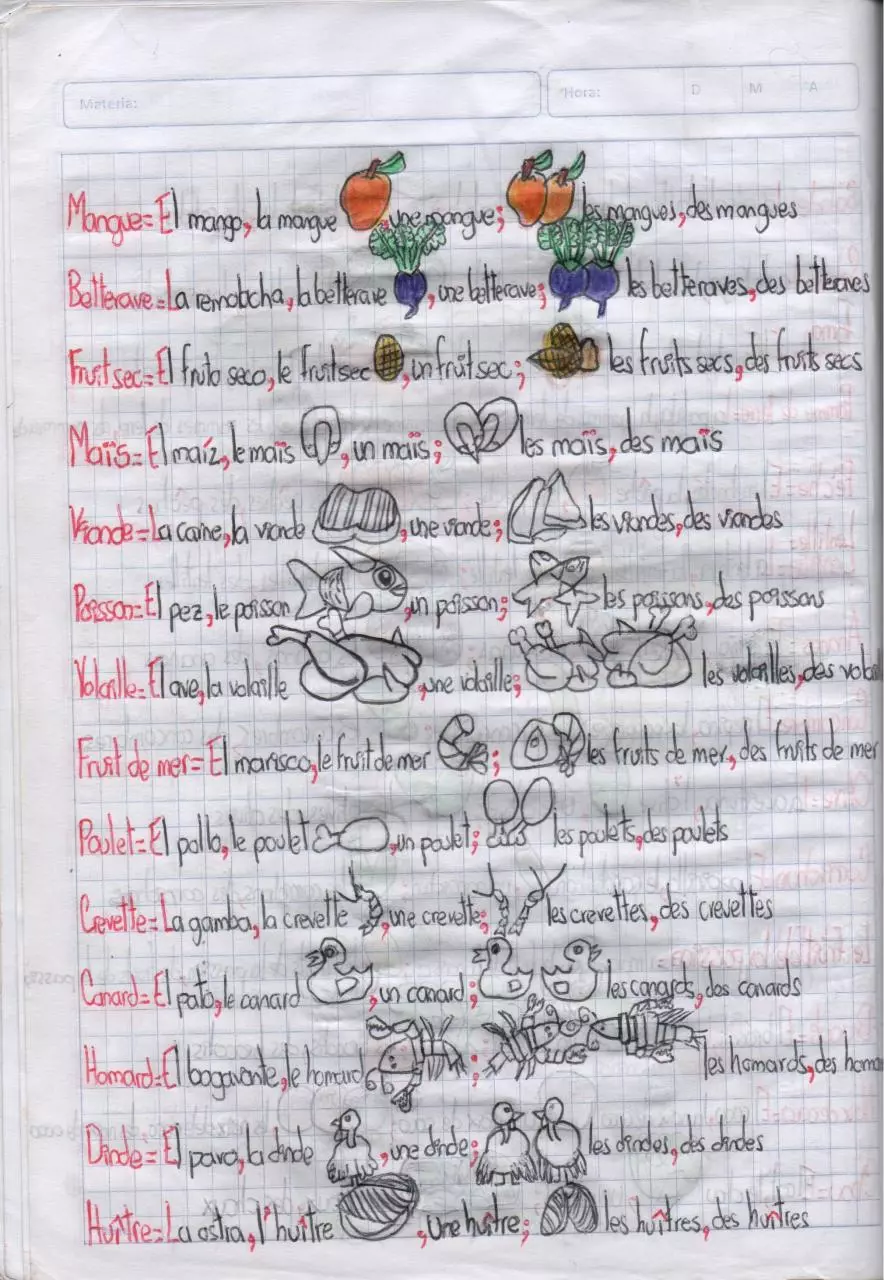 Materia:
Hora: D M A
Mangue= El mango, la mangue, une mangue; les mangues, des mangues
Betterave= La remobcha, la betterave, une betterave; les betteraves, des betteraves
Fruit sec= El fruto seco, le fruit sec, un fruit sec; les fruits secs, des fruits secs
Maïs= El maíz, le maïs, un maïs; les maïs, des maïs
Viande= La carne, la viande, une viande; les viandes, des viandes
Poisson= El pez, le poisson, un poisson; les poissons, des poissons
Volaille= El ave, la volaille, une volaille; les volailles, des volai
Fruit de mer= El marisco, le fruit de mer; les fruits de mer, des fruits de mer
Poulet= El pollo, le poulet, un poulet; les poulets, des poulets
Crevette= La gamba, la crevette, une crevette; les crevettes, des crevettes
Canard= El pato, le canard, un canard; les canards, des canards
Homard= El bogavante, le homard; les homards, des homa
Dinde= El pavo, la dinde, une dinde; les dindes, des dindes
Huître= La ostra, l'huître, une huître; les huîtres, des huîtres